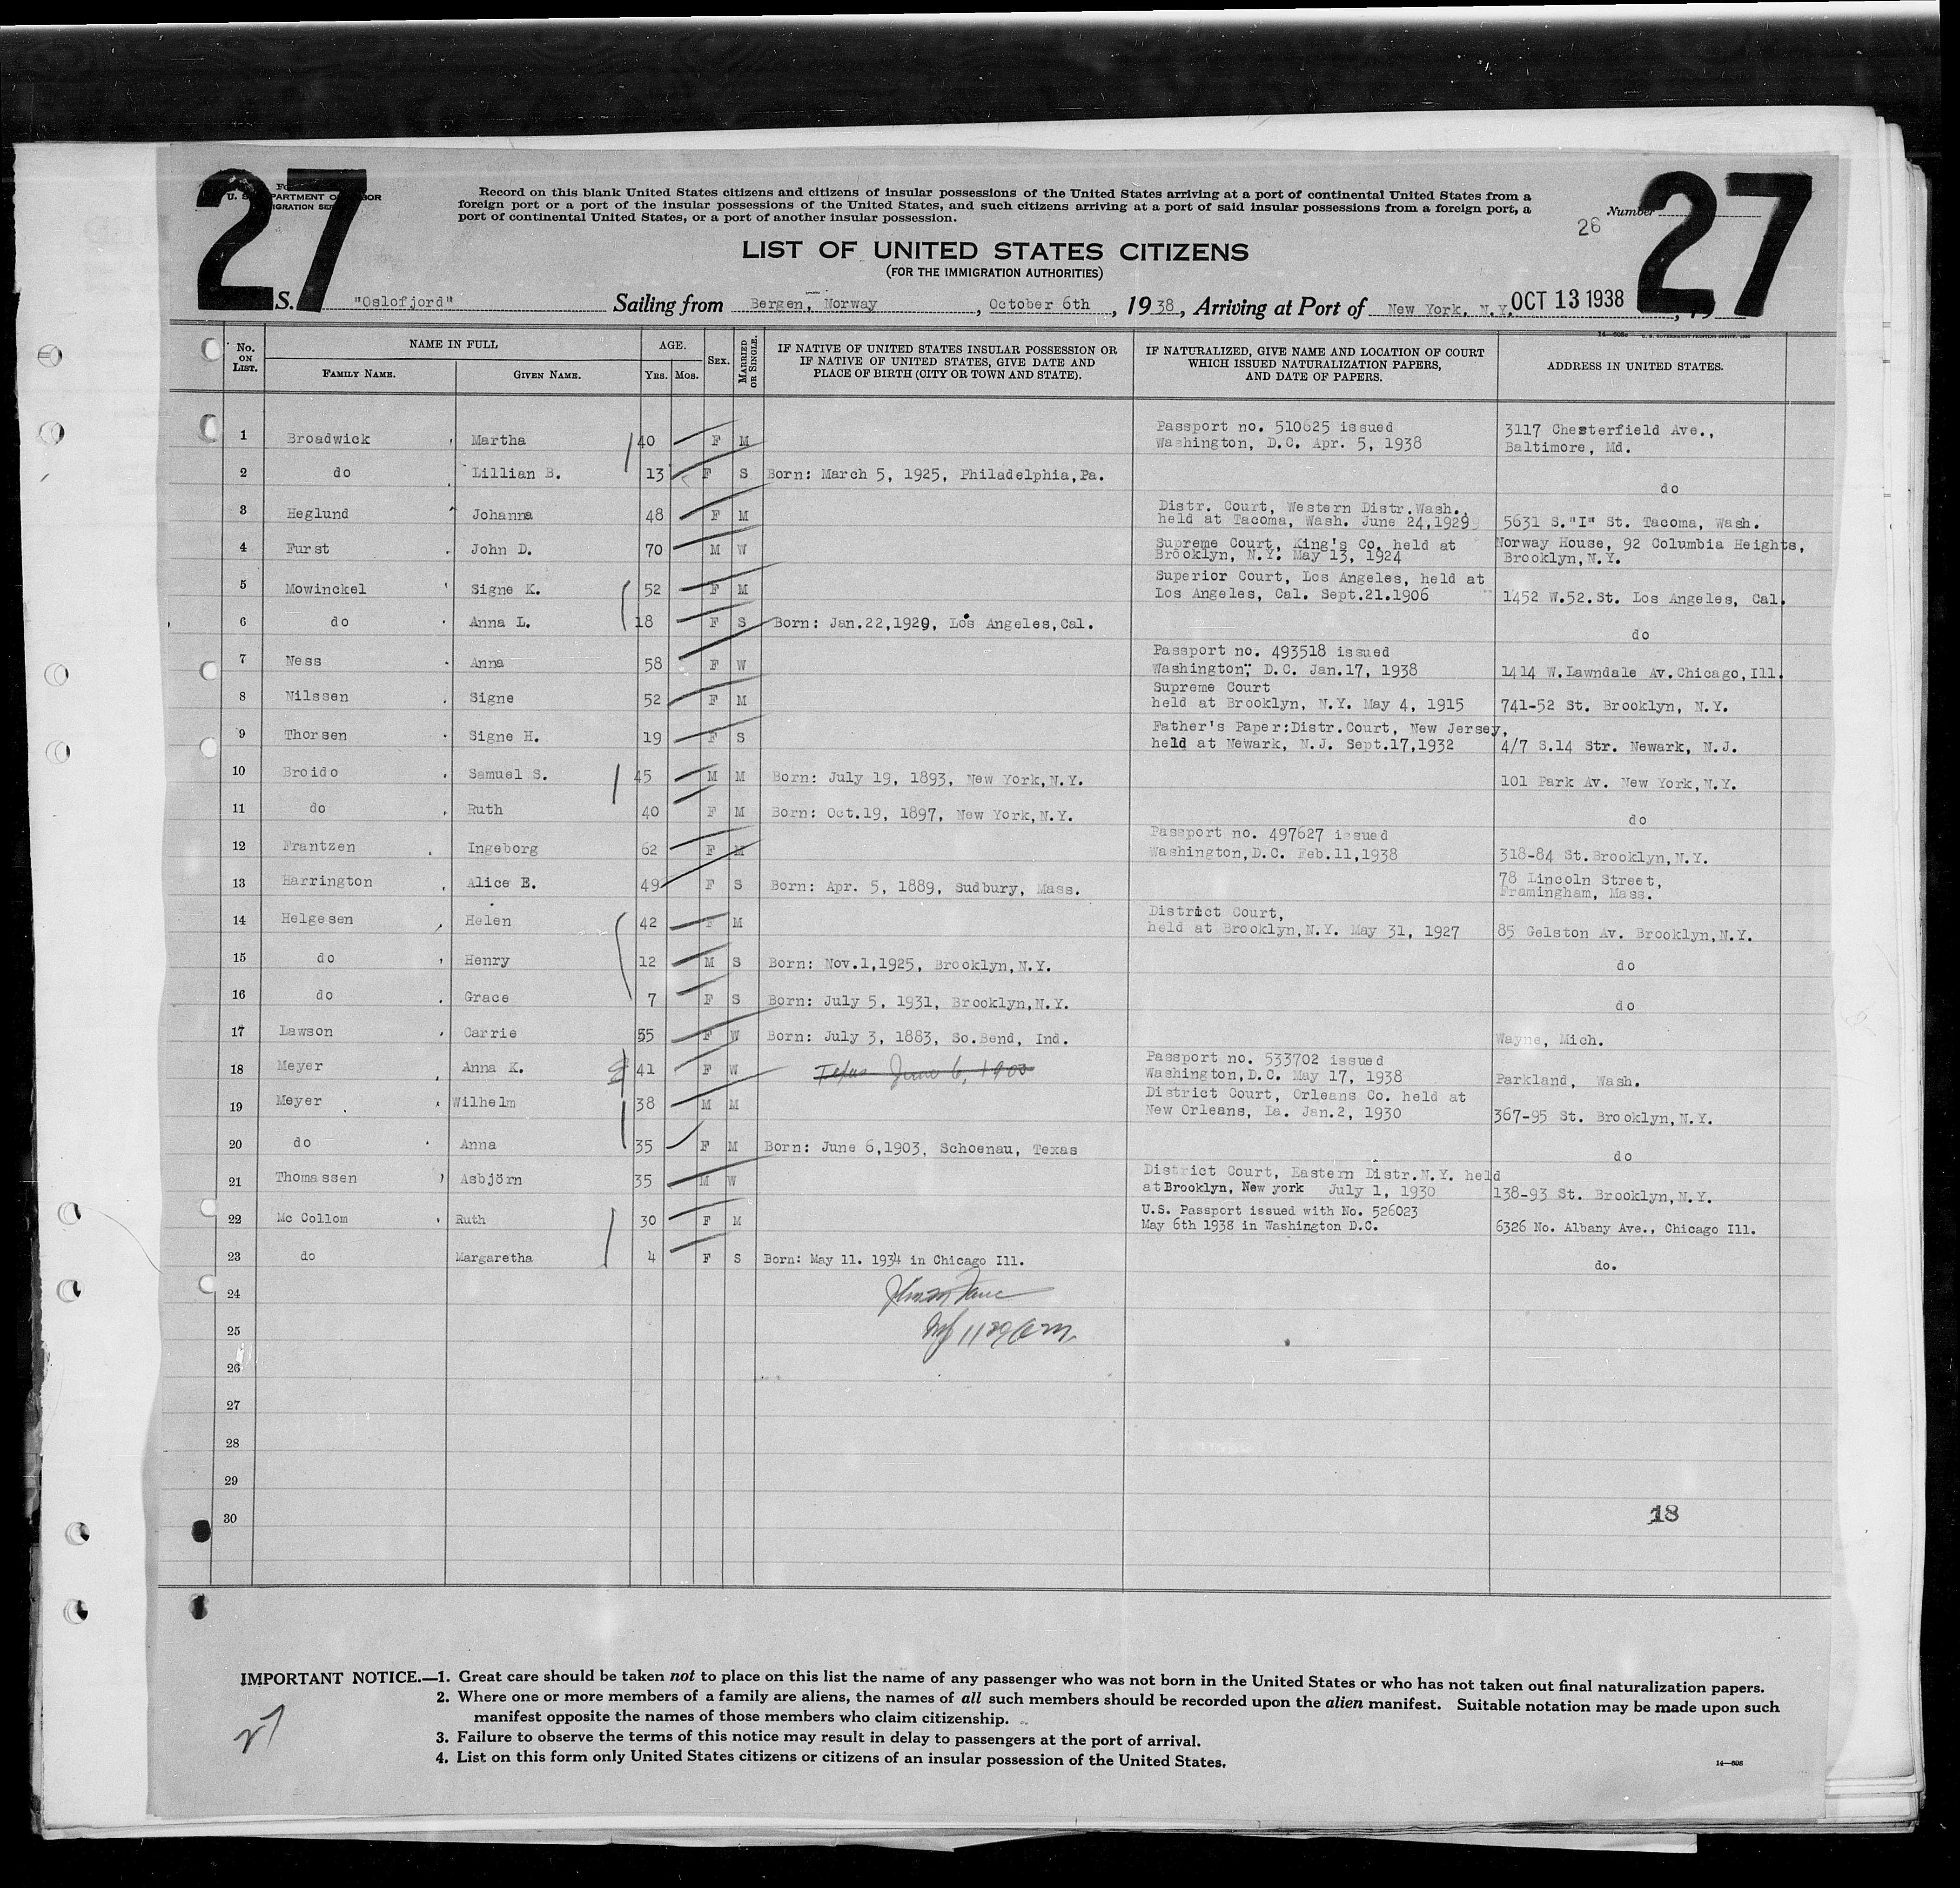 27
27
U. S. DEPARTMENT OF LABOR
IMMIGRATION SERVICE
Record on this blank United States citizens and citizens of insular possessions of the United States arriving at a port of continental United States from a
foreign port or a port of the insular possessions of the United States, and such citizens arriving at a port of said insular possessions from a foreign port, a
port of continental United States, or a port of another insular possession.
Number
26
LIST OF UNITED STATES CITIZENS
(FOR THE IMMIGRATION AUTHORITIES)
S. "Oslofjord" Sailing from Bergen, Norway, October 6th, 1938, Arriving at Port of New York, N.Y. OCT 13 1938, 19
No. ON LIST. NAME IN FULL FAMILY NAME. GIVEN NAME. AGE. YRS. MOS. SEX. MARRIED OR SINGLE.
IF NATIVE OF UNITED STATES INSULAR POSSESSION OR
IF NATIVE OF UNITED STATES, GIVE DATE AND
PLACE OF BIRTH (CITY OR TOWN AND STATE).
IF NATURALIZED, GIVE NAME AND LOCATION OF COURT
WHICH ISSUED NATURALIZATION PAPERS,
AND DATE OF PAPERS.
ADDRESS IN UNITED STATES.
1 Broadwick, Martha 40 F M Passport no. 510625 issued
Washington, D.C. Apr. 5, 1938 3117 Chesterfield Ave.,
Baltimore, Md.
2 do Lillian B. 13 F S Born: March 5, 1925, Philadelphia,Pa. do
3 Heglund Johanna 48 F M Distr. Court, Western Distr.Wash.,
held at Tacoma, Wash. June 24,1929 5631 S."I" St. Tacoma, Wash.
4 Furst John D. 70 M W Supreme Court, King's Co. held at
Brooklyn, N.Y. May 13, 1924 Norway House, 92 Columbia Heights,
Brooklyn,N.Y.
5 Mowinckel Signe K. 52 F M Superior Court, Los Angeles, held at
Los Angeles, Cal. Sept.21.1906 1452 W.52.St. Los Angeles, Cal.
6 do Anna L. 18 F S Born: Jan.22,1920, Los Angeles,Cal. do
7 Ness Anna 58 F W Passport no. 493518 issued
Washington, D.C. Jan.17, 1938 1414 W.Lawndale Av.Chicago,Ill.
8 Nilssen Signe 52 F M Supreme Court
held at Brooklyn, N.Y. May 4, 1915 741-52 St. Brooklyn, N.Y.
9 Thorsen Signe H. 19 F S Father's Paper:Distr.Court, New Jersey,
held at Newark, N.J. Sept.17,1932 4/7 S.14 Str. Newark, N.J.
10 Broido Samuel S. 45 M M Born: July 19, 1893, New York,N.Y. 101 Park Av. New York,N.Y.
11 do Ruth 40 F M Born: Oct.19, 1897, New York,N.Y. do
12 Frantzen Ingeborg 62 F M Passport no. 497627 issued
Washington,D.C. Feb.11,1938 318-84 St.Brooklyn,N.Y.
13 Harrington Alice E. 49 F S Born: Apr. 5, 1889, Sudbury, Mass. 78 Lincoln Street,
Framingham, Mass.
14 Helgesen Helen 42 F M District Court,
held at Brooklyn,N.Y. May 31, 1927 85 Gelston Av. Brooklyn,N.Y.
15 do Henry 12 M S Born: Nov.1,1925, Brooklyn,N.Y. do
16 do Grace 7 F S Born: July 5, 1931, Brooklyn,N.Y. do
17 Lawson Carrie 55 F W Born: July 3, 1883, So.Bend, Ind. Wayne, Mich.
18 Meyer Anna K. 41 F W Texas June 6, 1903 Passport no. 533702 issued
Washington,D.C. May 17, 1938 Parkland, Wash.
19 Meyer Wilhelm 38 M M District Court, Orleans Co. held at
New Orleans, La. Jan.2, 1930 367-95 St. Brooklyn,N.Y.
20 do Anna 35 F M Born: June 6,1903, Schoenau, Texas do
21 Thomassen Asbjörn 35 M W District Court, Eastern Distr.N.Y. held
at Brooklyn, New york July 1, 1930 138-93 St. Brooklyn,N.Y.
22 Mc Collom Ruth 30 F M U.S. Passport issued with No. 526023
May 6th 1938 in Washington D.C. 6326 No. Albany Ave., Chicago Ill.
23 do Margaretha 4 F S Born: May 11. 1934 in Chicago Ill. do.
24
25
26
27
28
29
30
18
IMPORTANT NOTICE.—1. Great care should be taken not to place on this list the name of any passenger who was not born in the United States or who has not taken out final naturalization papers.
2. Where one or more members of a family are aliens, the names of all such members should be recorded upon the alien manifest. Suitable notation may be made upon such
manifest opposite the names of those members who claim citizenship.
3. Failure to observe the terms of this notice may result in delay to passengers at the port of arrival.
4. List on this form only United States citizens or citizens of an insular possession of the United States.
14—608